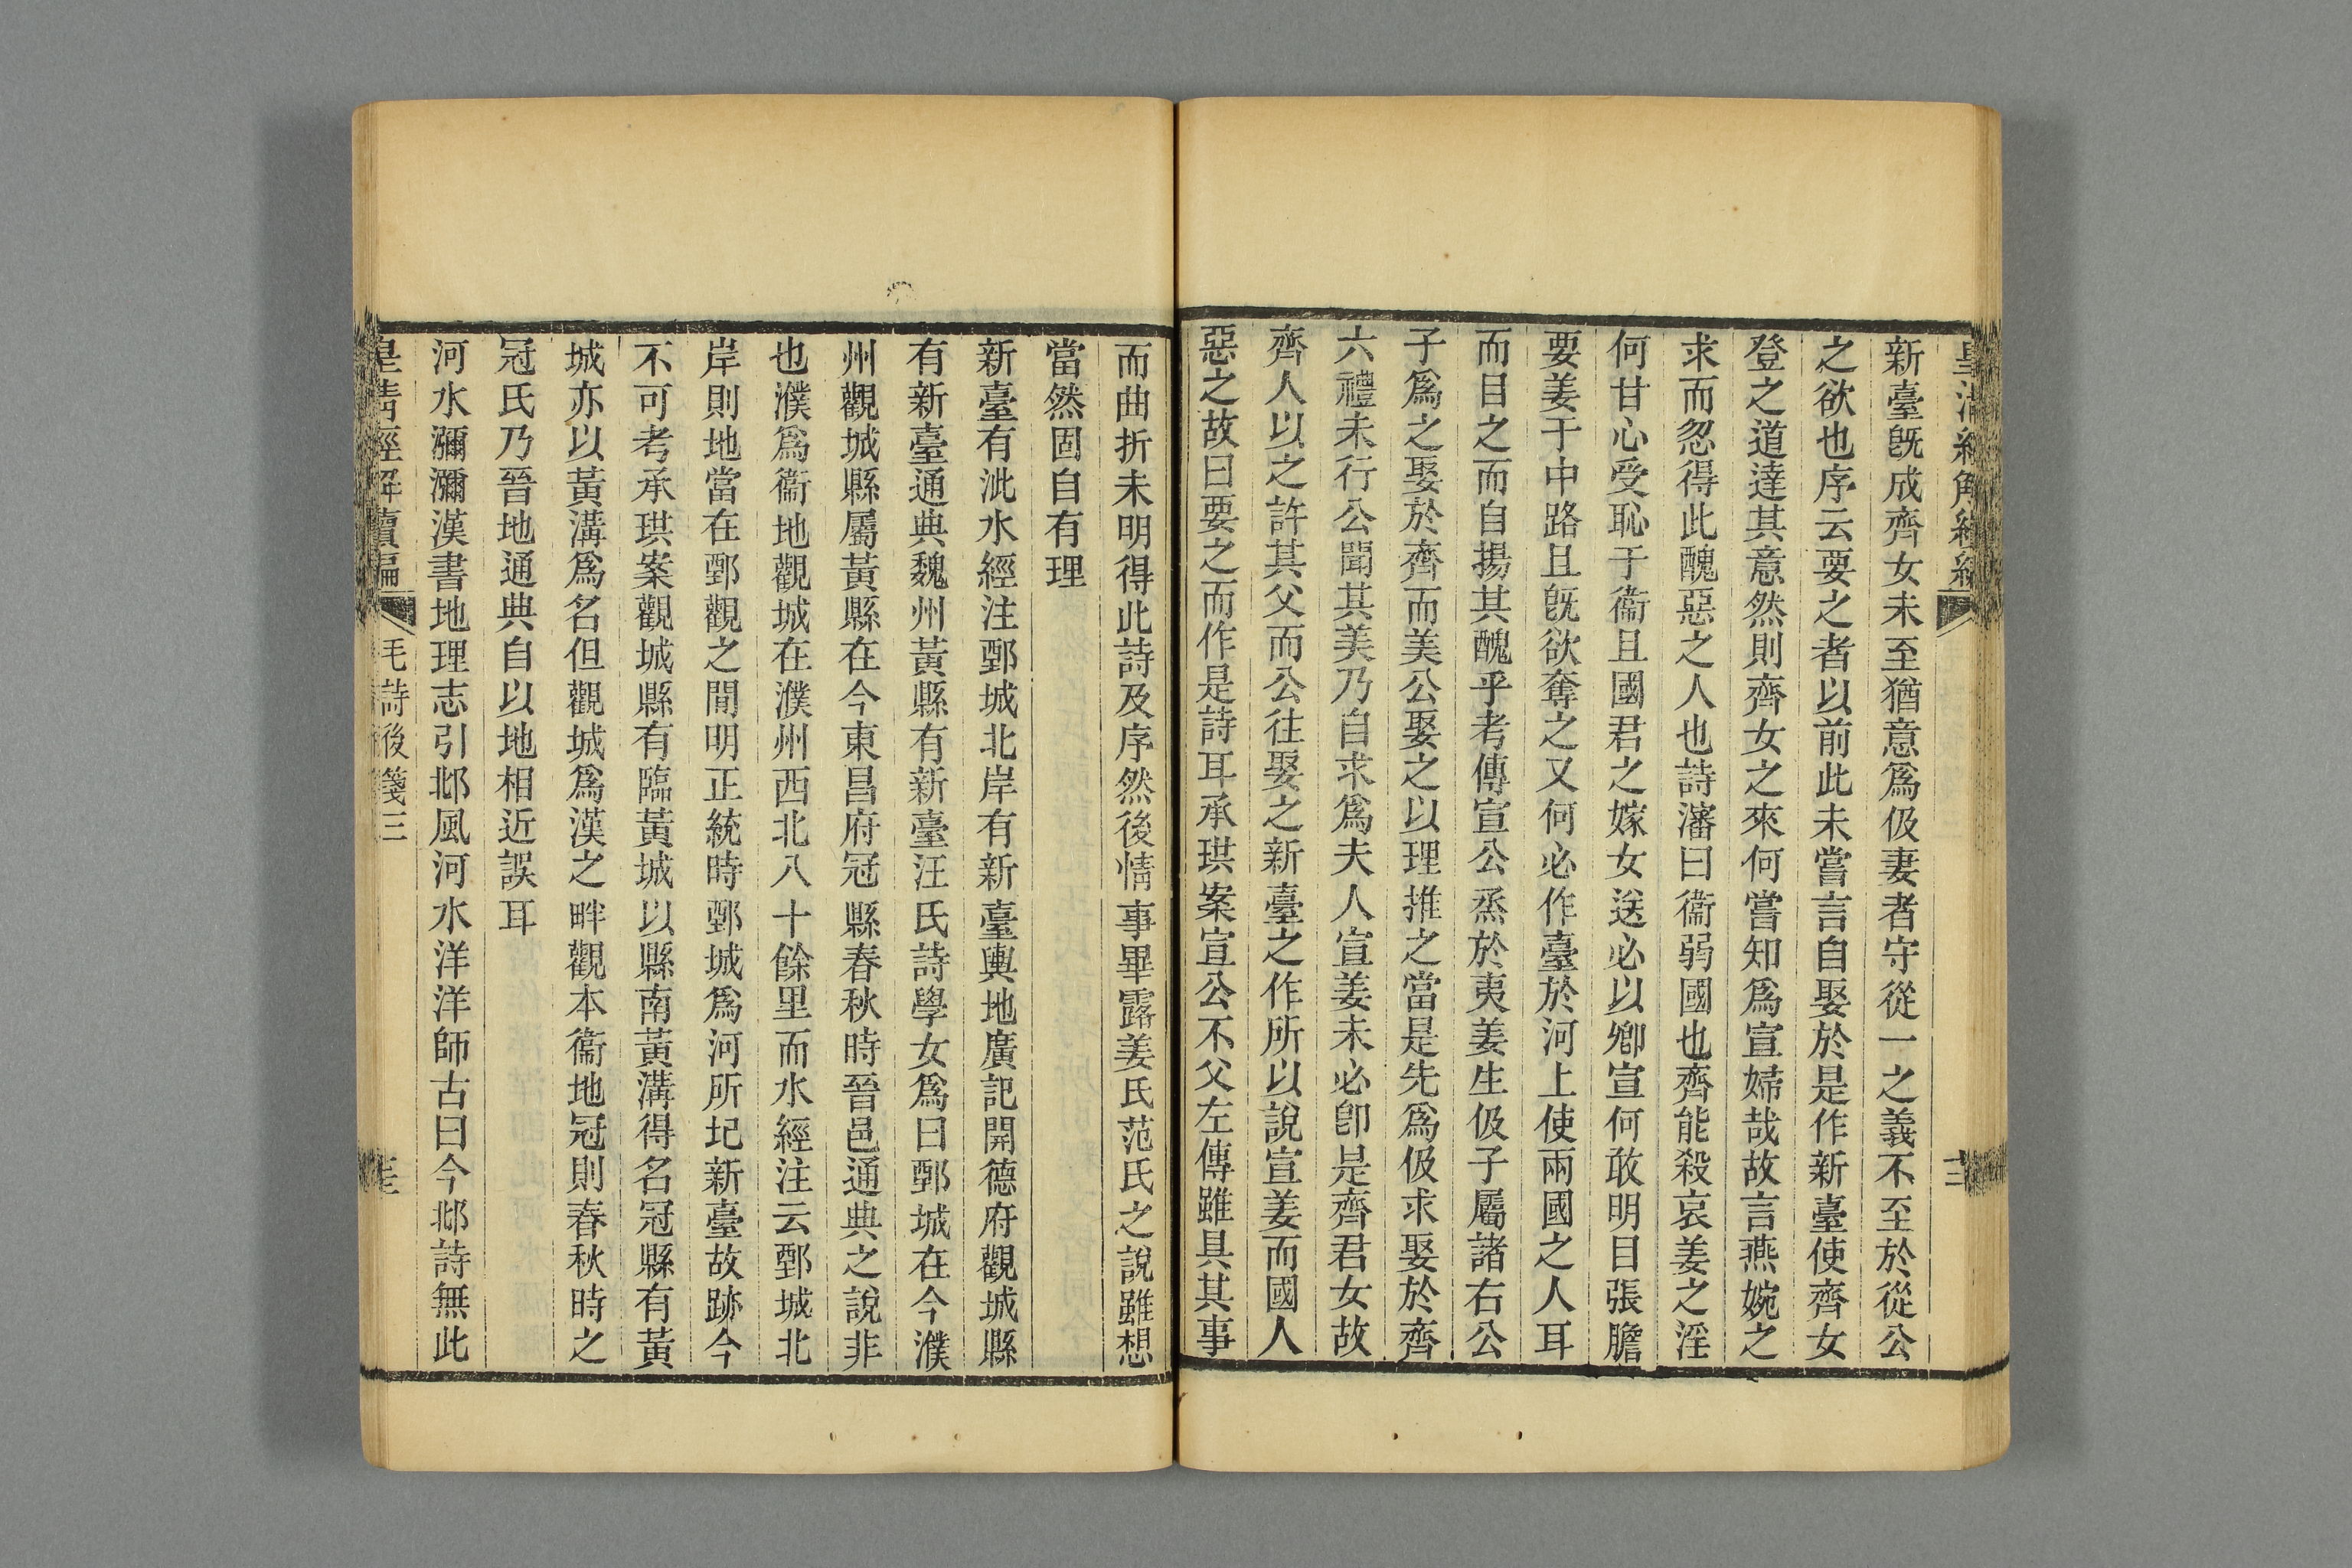 新臺旣成齊女未至猶意爲伋妻者守從一之義不至於從公
之欲也序云要之者以前此未嘗言自娶於是作新臺使齊女
登之道達其意然則齊女之來何嘗知爲宣婦哉故言燕婉之
求而忽得此醜惡之人也詩瀋曰衞弱國也齊能殺哀姜之淫
何甘心受恥于衞且國君之嫁女送必以卿宣何敢明目張膽
要姜于中路且旣欲奪之又何必作臺於河上使兩國之人耳
而目之而自揚其醜乎考傳宣公烝於夷姜生伋子屬諸右公
子爲之娶於齊而美公娶之以理推之當是先爲伋求娶於齊
六禮未行公聞其美乃自求爲夫人宣姜未必卽是齊君女故
齊人以之許其父而公往娶之新臺之作所以說宣姜而國人
惡之故曰要之而作是詩耳承珙案宣公不父左傳雖具其事
而曲折未明得此詩及序然後情事畢露姜氏范氏之說雖想
當然固自有理
新臺有泚水經注鄄城北岸有新臺輿地廣記開德府觀城縣
有新臺通典魏州黃縣有新臺汪氏詩學女爲曰鄄城在今濮
州觀城縣屬黃縣在今東昌府冠縣春秋時晉邑通典之說非
也濮爲衞地觀城在濮州西北八十餘里而水經注云鄄城北
岸則地當在鄄觀之間明正統時鄄城爲河所圮新臺故跡今
不可考承珙案觀城縣有臨黃城以縣南黃溝得名冠縣有黃
城亦以黃溝爲名但觀城爲漢之畔觀本衞地冠則春秋時之
冠氏乃晉地通典自以地相近誤耳
河水瀰瀰漢書地理志引邶風河水洋洋師古曰今邶詩無此
皇淸經解續編 毛詩後箋三